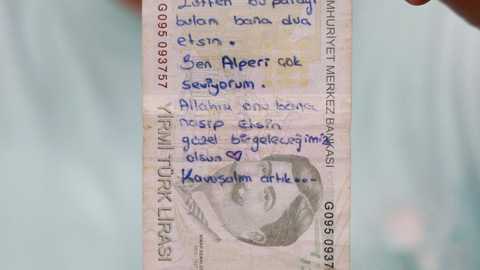 Lütfen bu parayı
bulam bana dua
etsin.
Ben Alperi çok
seviyorum.
Allahım onu bana
nasip etsin
güzel bi geleceğimiz
olsun ♡
Kavuşalım artık...
G095 093757
YİRMİ TÜRK LİRASI
CUMHURİYET MERKEZ BANKASI
G095 0937